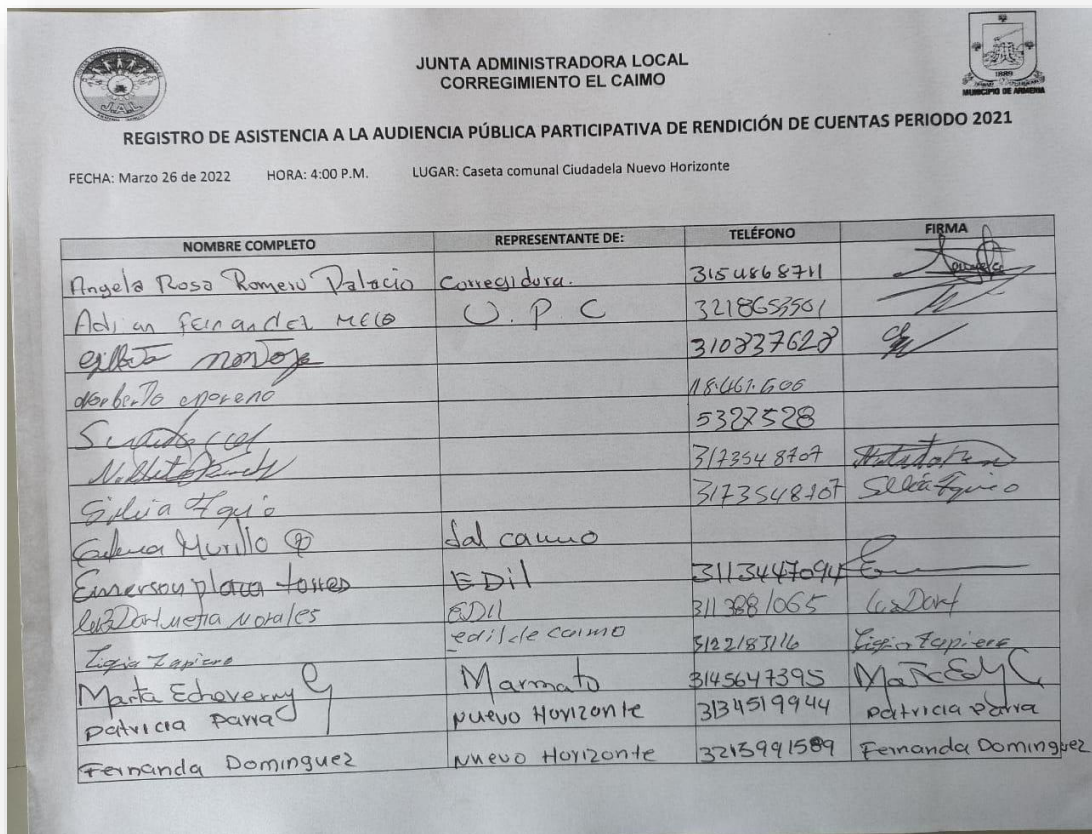 JUNTA ADMINISTRADORA LOCAL
CORREGIMIENTO EL CAIMO
JAL
1889
MUNICIPIO DE ARMENIA
REGISTRO DE ASISTENCIA A LA AUDIENCIA PÚBLICA PARTICIPATIVA DE RENDICIÓN DE CUENTAS PERIODO 2021
FECHA: Marzo 26 de 2022 HORA: 4:00 P.M. LUGAR: Caseta comunal Ciudadela Nuevo Horizonte
NOMBRE COMPLETO REPRESENTANTE DE: TELÉFONO FIRMA
Angela Rosa Romero Palacio Corregidora. 3154868711
Adrian fernandez MELO U.P.C 3218653501
310837628
Norberto moreno 18.461.606
5327528
3173548707
Silvia 3173548707 Silvia
Murillo Jal caimo
Emerson plaza torres EDil 3113447094
Luz Dary Mejia Morales EDIL 3113881065 Luz Dary
Ligia Zapiero edil de caimo 3122183116 Ligia Zapiero
Marta Echeverry G Marmato 3145647395
patricia parra Nuevo Horizonte 3134519944 patricia parra
Fernanda Dominguez Nuevo Horizonte 3213991589 Fernanda Dominguez